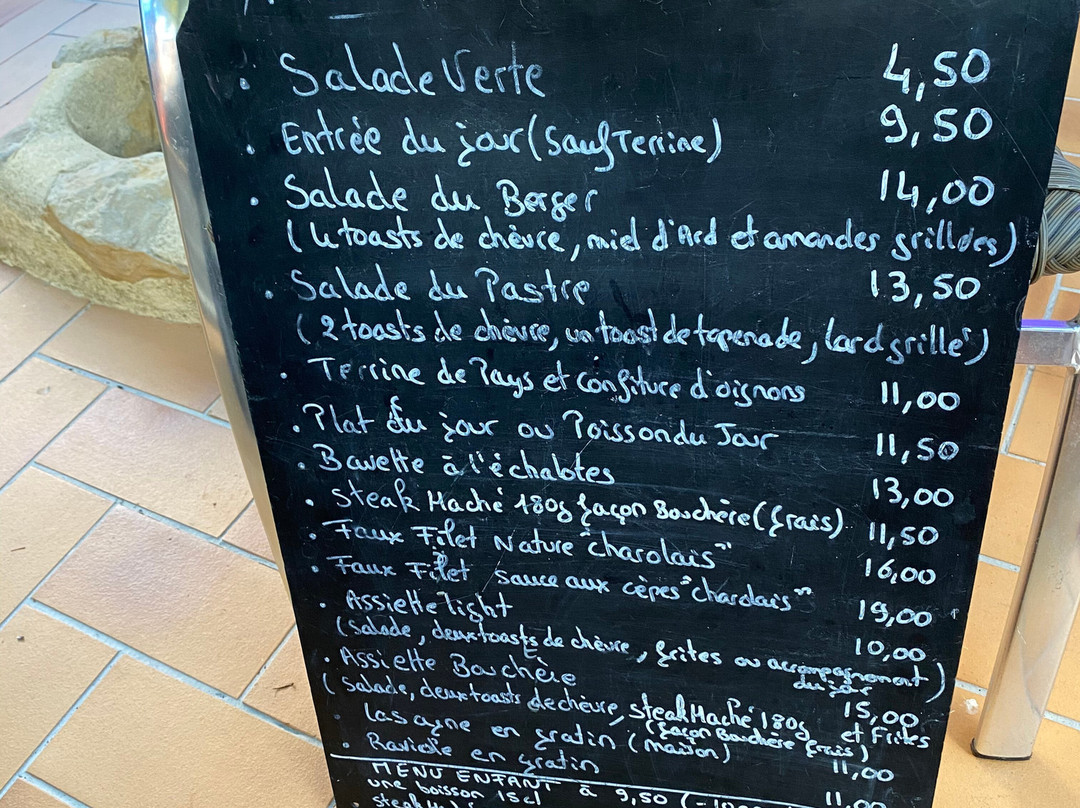 . Salade Verte 4,50
. Entrée du jour (Sauf Terrine) 9,50
. Salade du Berger 14,00
(4 toasts de chèvre, miel d'Ard et amandes grillées)
. Salade du Pastre 13,50
(2 toasts de chèvre, un toast de tapenade, lard grillé)
. Terrine de Pays et confiture d'oignons 11,00
. Plat du jour ou Poisson du Jour 11,50
. Bavette à l'échalotes 13,00
. Steak Haché 180g façon Bouchère (frais) 11,50
. Faux Filet Nature "charolais" 16,00
. Faux Filet sauce aux cèpes "charolais" 19,00
. Assiette light 10,00
(Salade, deux toasts de chèvre, frites ou accompagnement du jour)
. Assiette Bouchère 15,00
(Salade, deux toasts de chèvre, steak Haché 180g et Frites
(façon Bouchère frais)
. Lasagne en gratin (maison) 11,00
. Raviole en gratin 11,00
MENU ENFANT à 9,50
une boisson 15cl